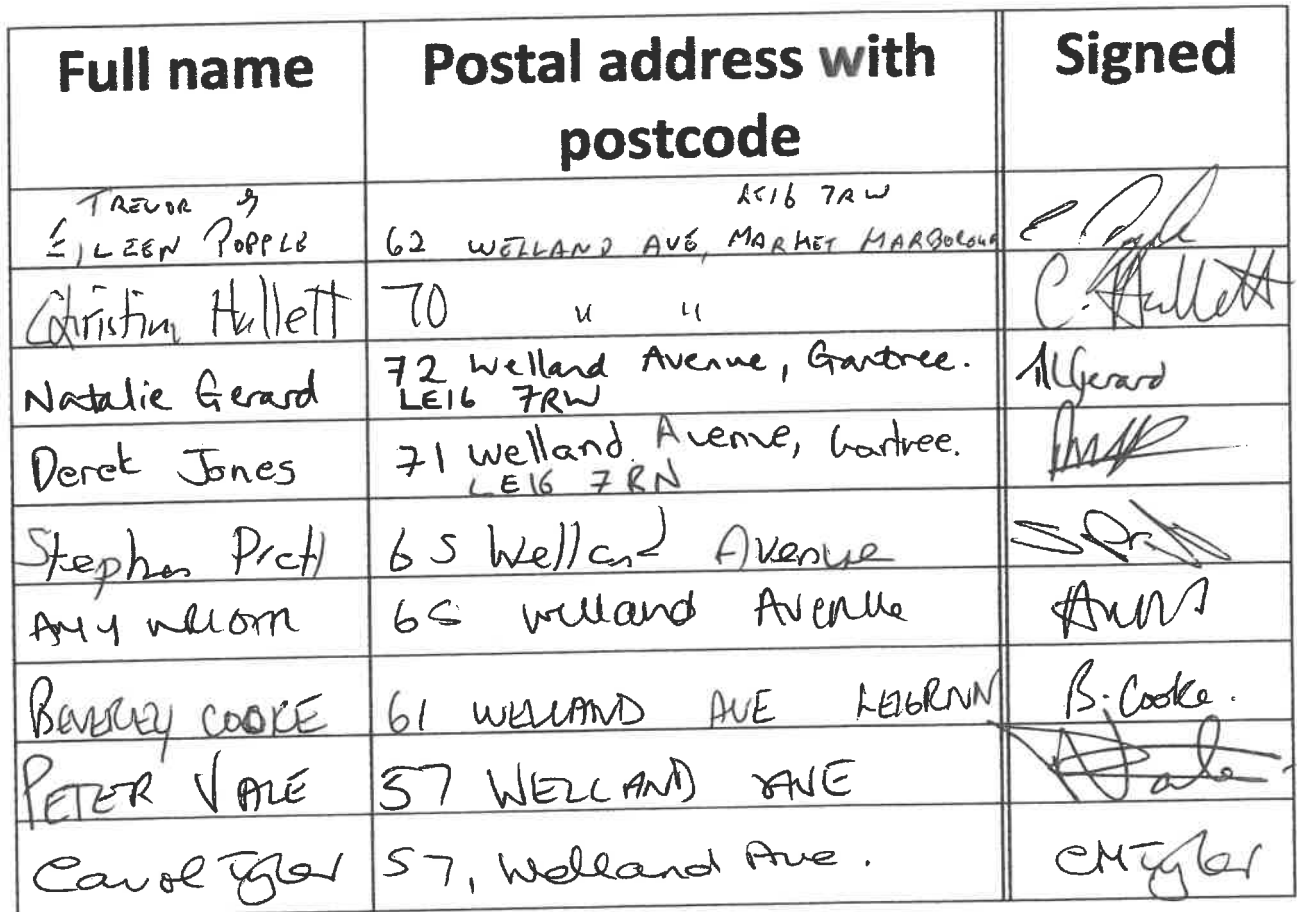 Full name Postal address with postcode Signed
TREVOR & LE16 7RW
EILEEN POPPLE 62 WELLAND AVE, MARKET HARBOROUGH
Christine Hullett 70 " " C. Hullett
Natalie Gerard 72 Welland Avenue, Gartree. NGerard
LE16 7RW
Derek Jones 71 Welland Avenue, Gartree.
LE16 7RN
Stephen 65 Welland Avenue
Amy 65 Welland Avenue
BEVERLEY COOKE 61 WELLAND AVE LE16RNN B. Cooke.
PETER VALE 57 WELLAND AVE
Carol Tyler 57, Welland Ave. CMTyler